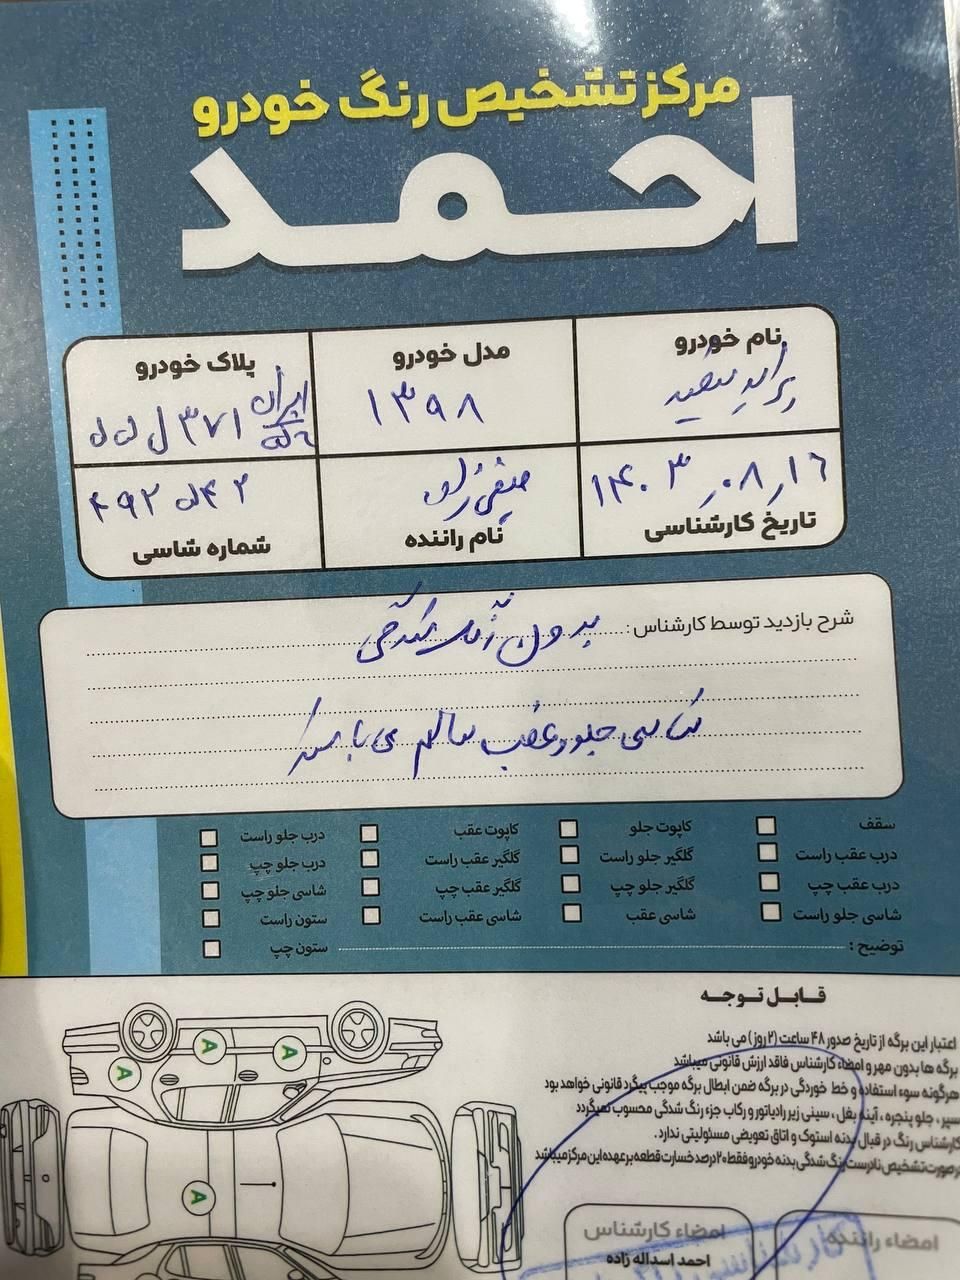 مرکز تشخیص رنگ خودرو
احمد
نام خودرو
مدل خودرو
پلاک خودرو
پراید سفید
۱۳۹۸
ایران
۳۷۱ ل
۱۴۰۳,۰۸,۱۶
تاریخ کارشناسی
نام راننده
شماره شاسی
شرح بازدید توسط کارشناس :
بدون رنگ شدگی
شاسی جلو و عقب سالم می باشد
سقف
کاپوت جلو
کاپوت عقب
درب جلو راست
درب عقب راست
گلگیر جلو راست
گلگیر عقب راست
درب جلو چپ
درب عقب چپ
گلگیر جلو چپ
گلگیر عقب چپ
شاسی جلو چپ
شاسی جلو راست
شاسی عقب
شاسی عقب راست
ستون راست
توضیح :
ستون چپ
قابل توجه
اعتبار این برگه از تاریخ صدور ۴۸ ساعت (۲ روز) می باشد
برگه ها بدون مهر و امضاء کارشناس فاقد ارزش قانونی میباشد
هرگونه سوء استفاده و خط خوردگی در برگه ضمن ابطال برگه موجب پیگرد قانونی خواهد بود
سپر ، جلو پنجره ، آینه بغل ، سینی زیر رادیاتور و رکاب جزء رنگ شدگی محسوب نمیگردد
کارشناس رنگ در قبال بدنه استوک و اتاق تعویضی مسئولیتی ندارد .
درصورت تشخیص نادرست رنگ شدگی بدنه خودرو فقط ۲۰ درصد خسارت قطعه بر عهده این مرکز میباشد
A
A
A
A
امضاء راننده
امضاء کارشناس
احمد اسداله زاده